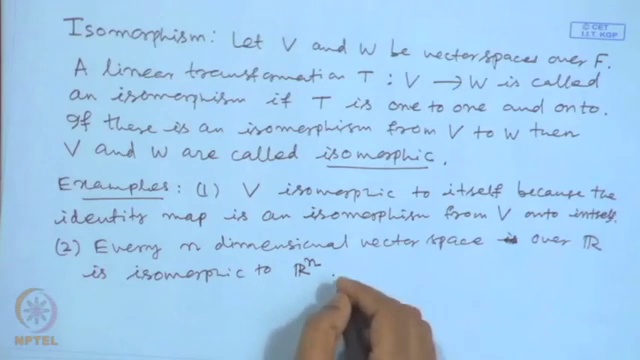 © CET
I.I.T. KGP
Isomorphism: Let V and W be vector spaces over F.
A linear transformation T : V → W is called
an isomorphism if T is one to one and onto.
If there is an isomorphism from V to W then
V and W are called isomorphic.
Examples: (1) V isomorphic to itself because the
identity map is an isomorphism from V onto intself.
(2) Every n dimensional vector space over ℝ
is isomorphic to ℝⁿ.
NPTEL